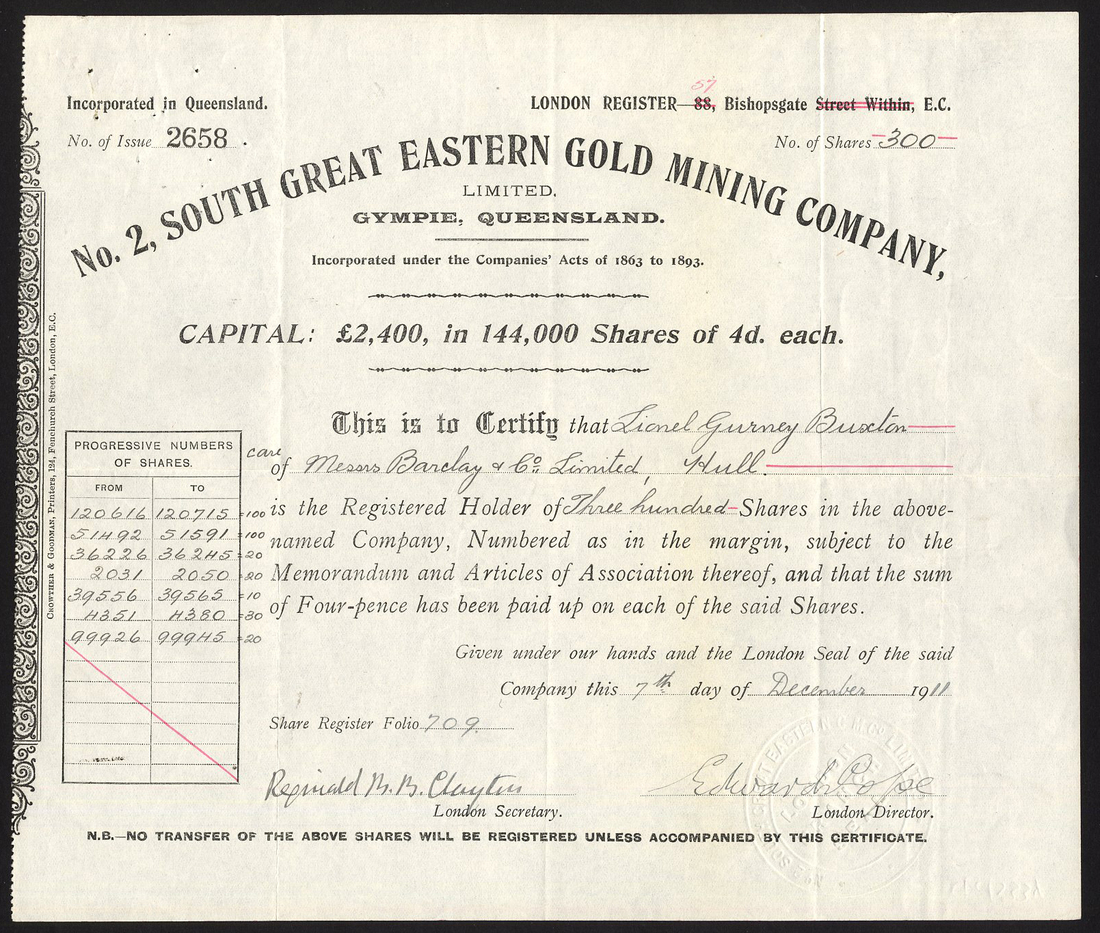 Incorporated in Queensland.
LONDON REGISTER—88, 57 Bishopsgate Street Within, E.C.
No. of Issue 2658.
No. of Shares 300
No. 2, SOUTH GREAT EASTERN GOLD MINING COMPANY,
LIMITED.
GYMPIE, QUEENSLAND.
Incorporated under the Companies' Acts of 1863 to 1893.
CAPITAL: £2,400, in 144,000 Shares of 4d. each.
This is to Certify that Lionel Gurney Buxton
care of Messrs Barclay & Co. Limited, Hull.
is the Registered Holder of Three hundred Shares in the above-
named Company, Numbered as in the margin, subject to the
Memorandum and Articles of Association thereof, and that the sum
of Four-pence has been paid up on each of the said Shares.
PROGRESSIVE NUMBERS
OF SHARES.
FROM TO
120616 120715 =100
51492 51591 =100
36226 36245 =20
2031 2050 =20
39556 39565 =10
4351 4380 =30
99926 99945 =20
Given under our hands and the London Seal of the said
Company this 7th day of December 1911
Share Register Folio 709.
Reginald B. B. Clayton
London Secretary.
Edward Cope
London Director.
N.B.—NO TRANSFER OF THE ABOVE SHARES WILL BE REGISTERED UNLESS ACCOMPANIED BY THIS CERTIFICATE.
CROWTHER & GOODMAN, Printers, 124, Fenchurch Street, London, E.C.